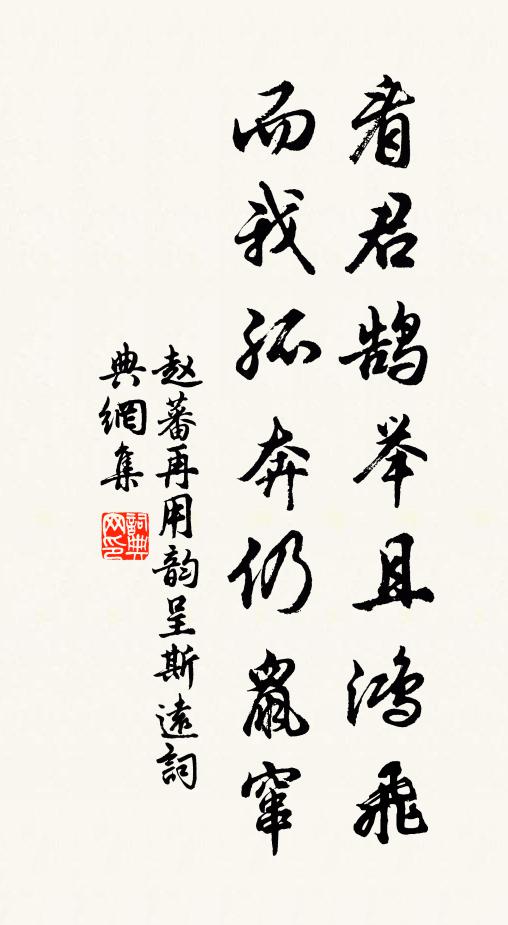 看君鹄举且鸿飞
而我孤奔仍鼠窜
赵蕃再用韵呈斯远詞
典網集
詞典
网印